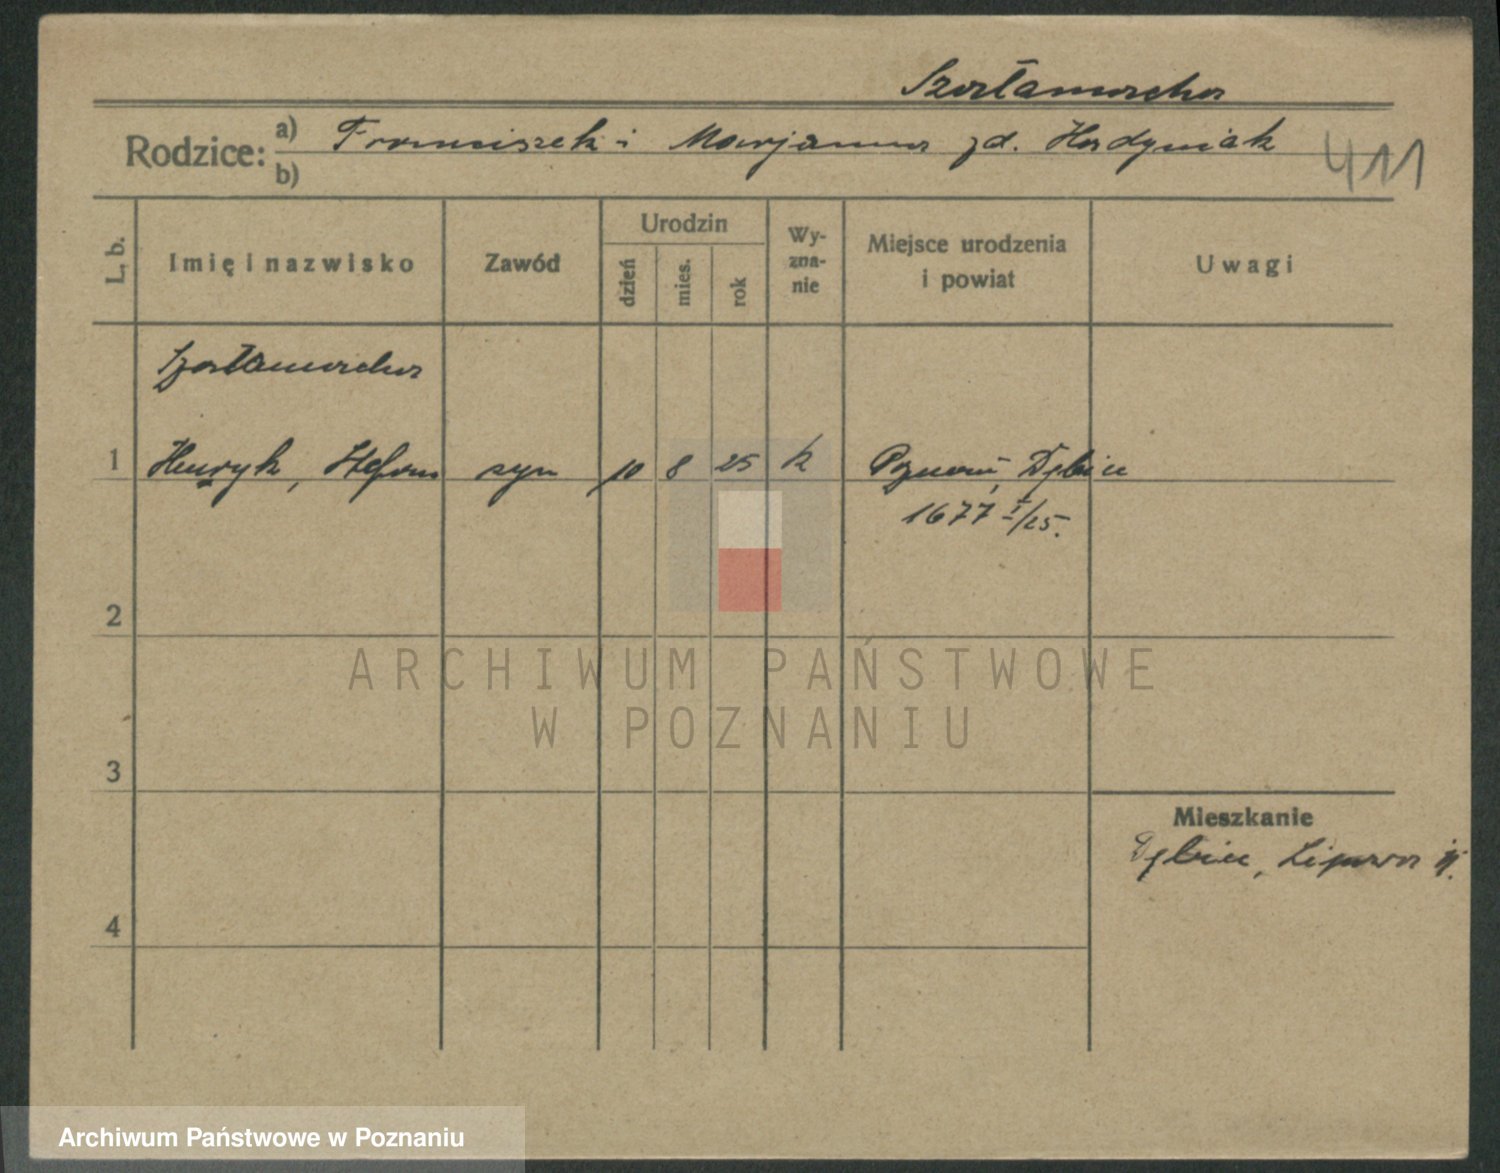 Szałamacha
Rodzice: a) Franciszek i Marjanna zd. Hadyniak
b)
411
L. b.
Imię i nazwisko
Zawód
Urodzin
dzień
mies.
rok
Wy-
zna-
nie
Miejsce urodzenia
i powiat
Uwagi
1 Henryk, Stefan syn 10 8 25 k Poznań, Dębiec
1677 I/25.
2
ARCHIWUM PAŃSTWOWE
W POZNANIU
3
Mieszkanie
Dębiec, Lipowa
4
Archiwum Państwowe w Poznaniu